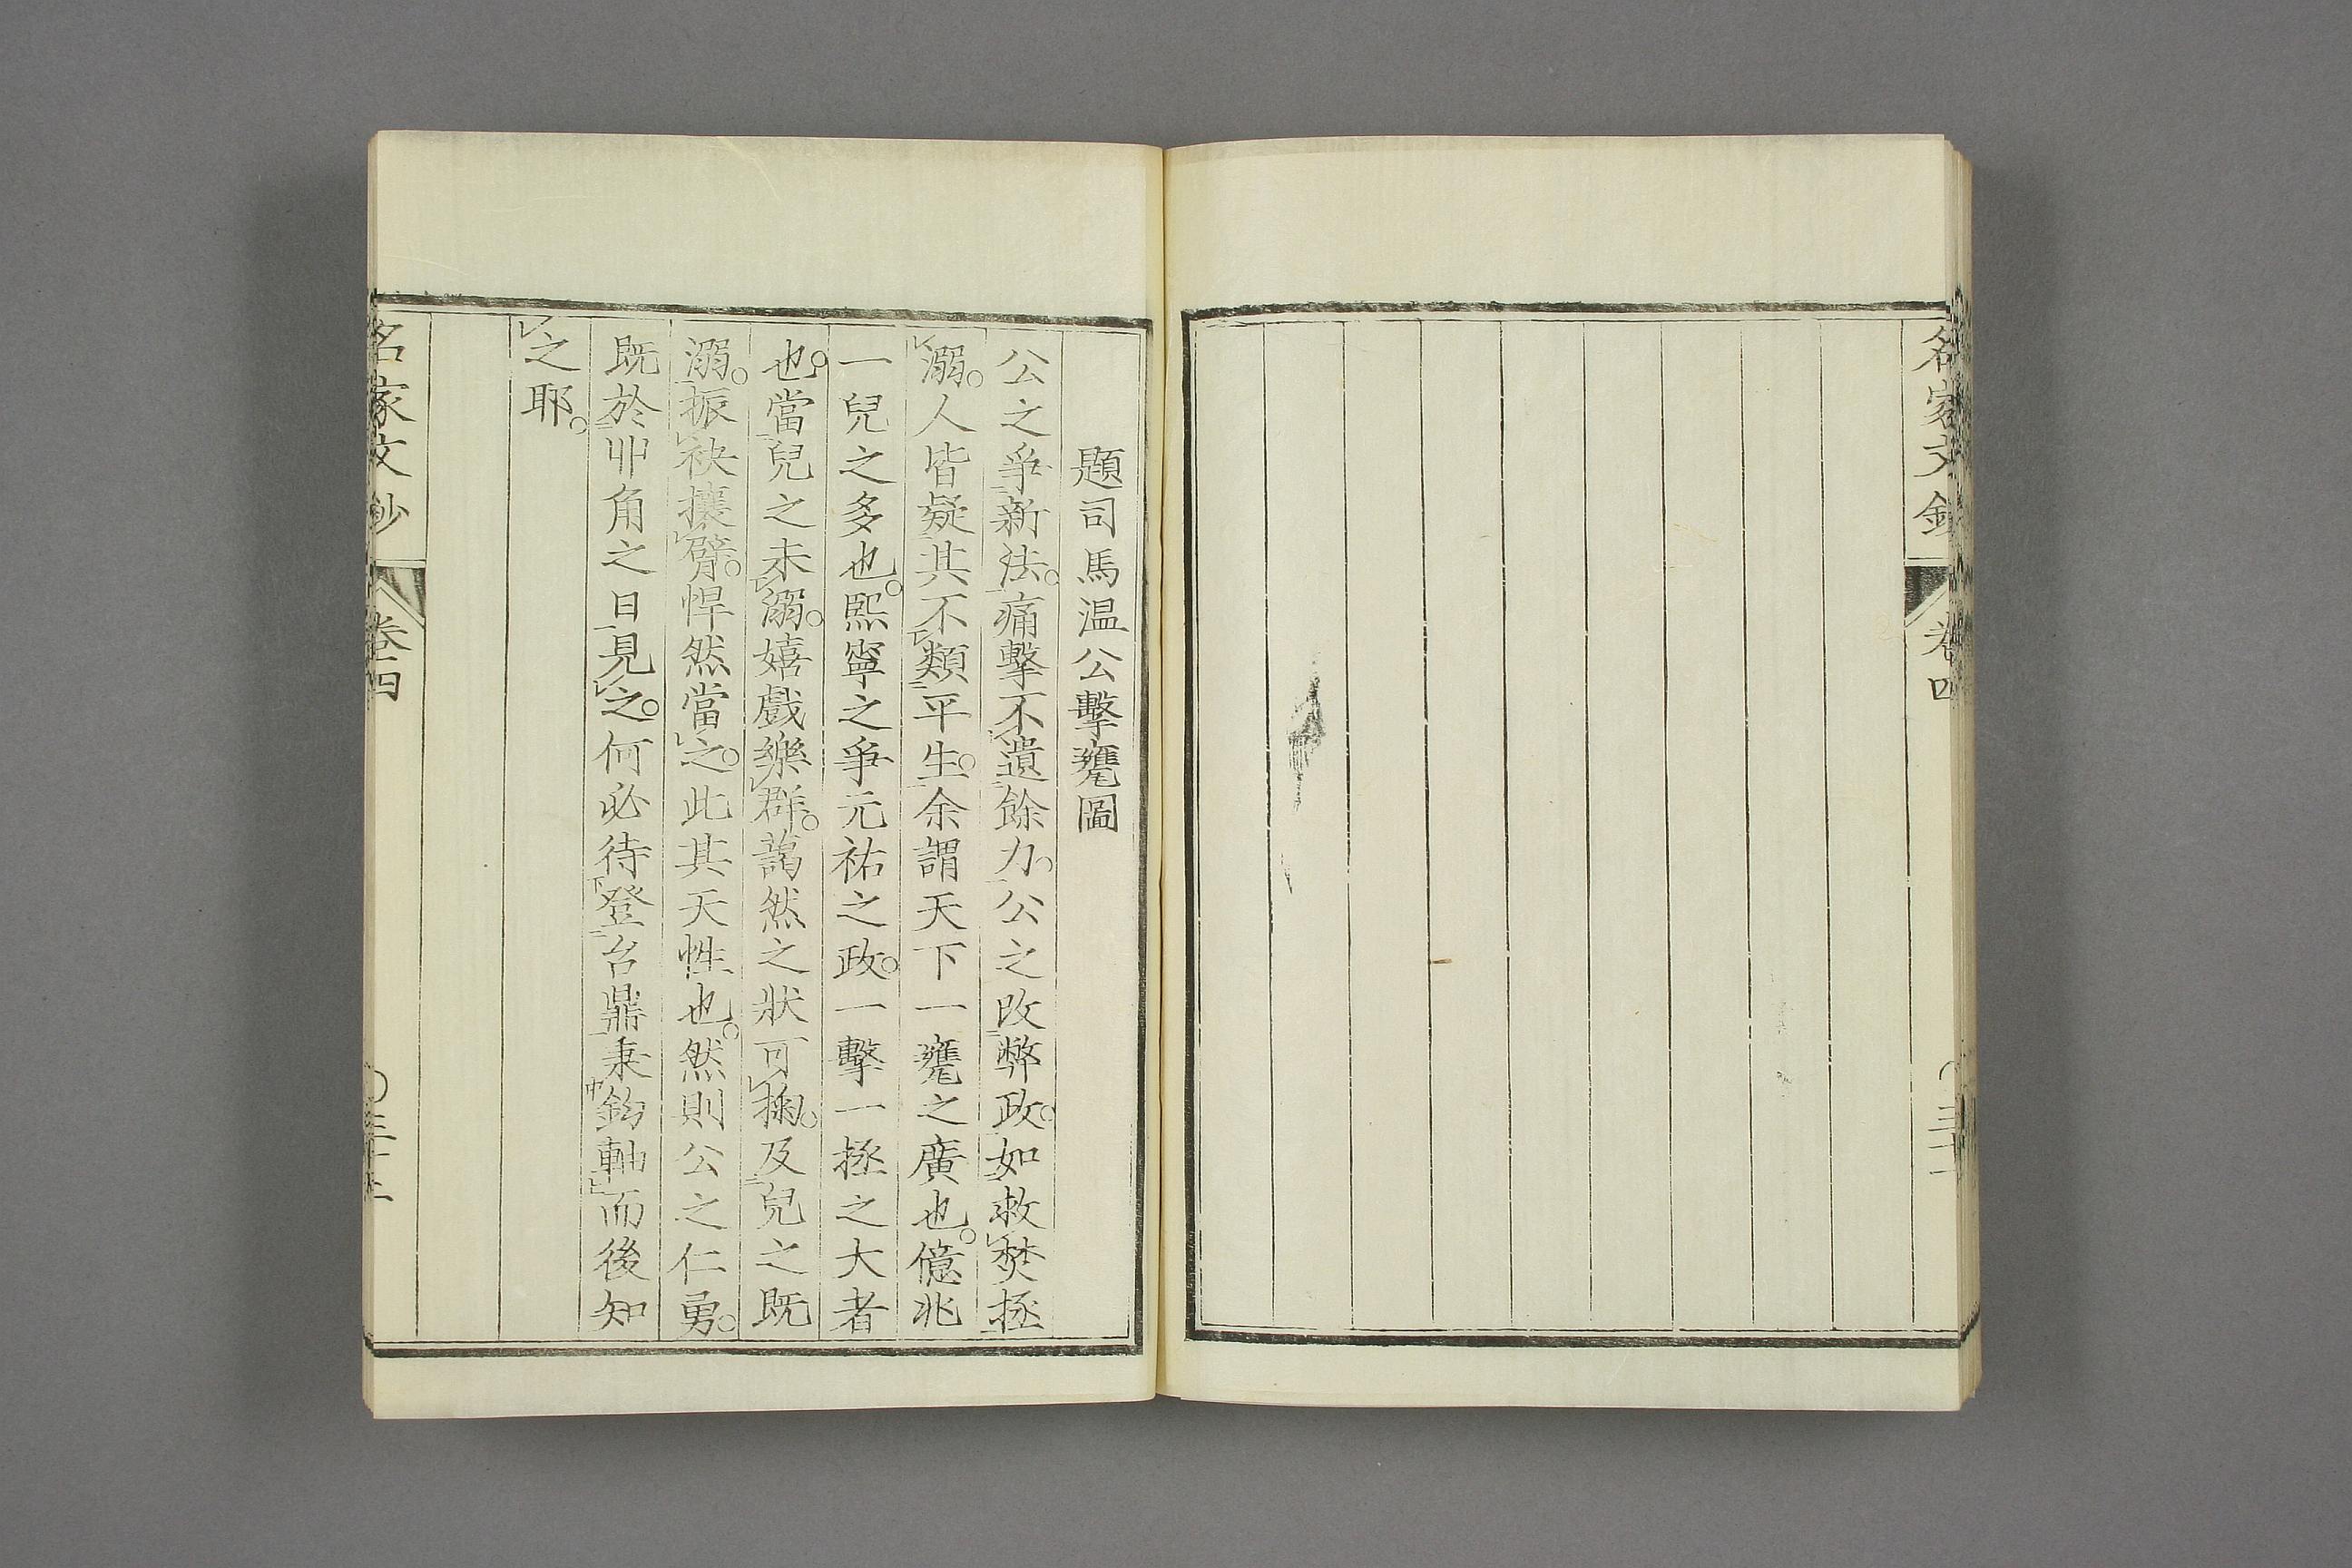 名家文鈔 卷四 〇三十
題司馬温公擊甕圖
公之爭新法。痛擊不遺餘力。公之改弊政。如救焚拯
溺。人皆疑其不類平生。余謂天下一甕之廣也。億兆
一兒之多也。熙寧之爭元祐之政。一擊一拯之大者
也。當兒之未溺。嬉戲樂群。藹然之狀可掬。及兒之既
溺。振袂攘臂。悍然當之。此其天性也。然則公之仁勇。
既於丱角之日見之。何必待登台鼎秉鈞軸而後知
之耶。
名家文鈔 卷四